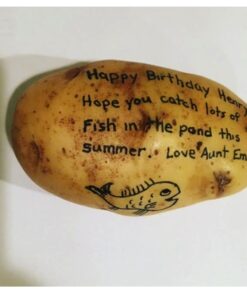 Happy Birthday
Hope you catch lots of
Fish in the pond this
summer. Love Aunt Em